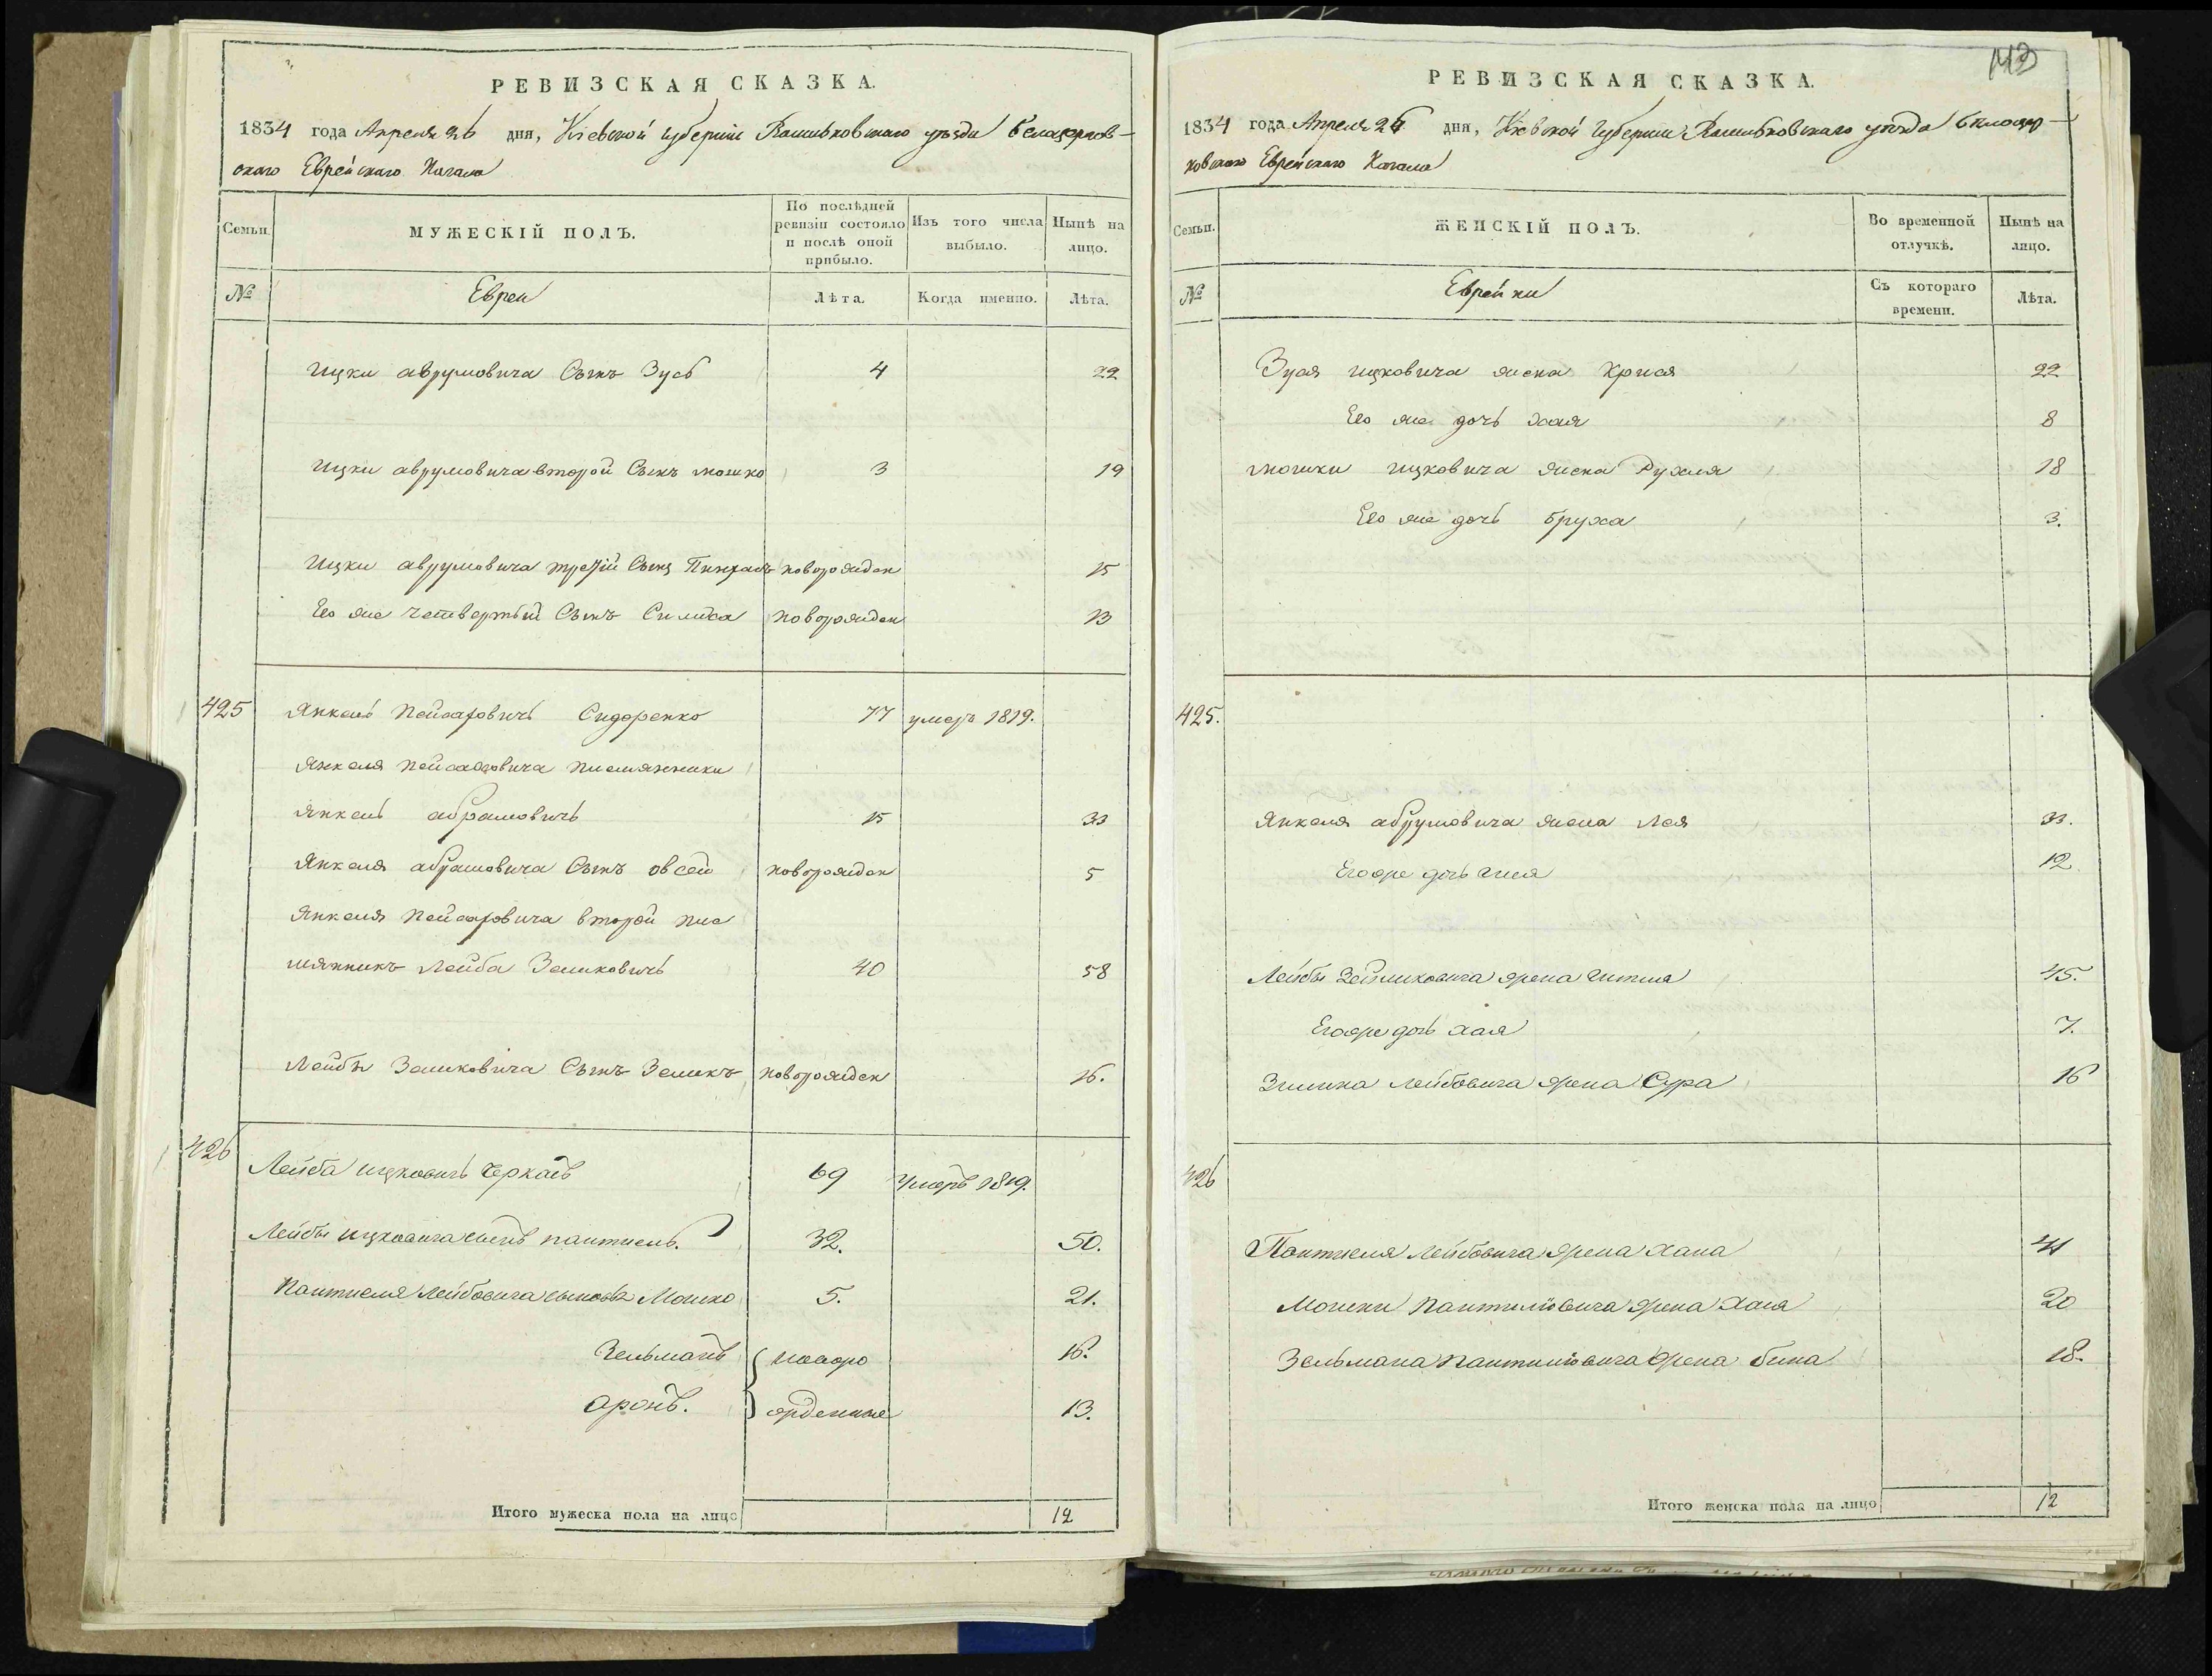 РЕВИЗСКАЯ СКАЗКА.
1834 года Апреля 26 дня, Кіевской губерніи уезда Белацерков-
скаго Еврейскаго Кагала
Семьи. МУЖЕСКІЙ ПОЛЪ. По послѣдней ревизіи состояло и послѣ оной прибыло. Изъ того числа выбыло. Нынѣ на лицо.
№ Евреи Лѣта. Когда именно. Лѣта.
Ицки аврумовича Сынъ Зусь 4 22
Ицки аврумовича второй Сынъ мошко 3 19
Ицки аврумовича третій Сынъ Пинхасъ новорожден 15
Его же четвертый Сынъ новорожден 13
425 Янкель Пейсаховичь Сидоренко 77 умеръ 1819.
Янкеля Пейсаховича племянники
Янкель абрамовичь 15 33
Янкеля абрамовича Сынъ овсей новорожден 5
Янкеля Пейсаховича второй пле
мянникъ Лейба Зеликовичь 40 58
Лейбы Зеликовича Сынъ Зеликъ новорожден 16.
426 Лейба ицковичь Черкасъ 69 Умеръ 1819.
Лейбы ицковича сынъ пантиель. 32. 50.
Пантиеля Лейбовича сыновья Мошко 5. 21.
Зельманъ новоро 16.
Аронъ. жденные 13.
Итого мужеска пола на лицо 12
РЕВИЗСКАЯ СКАЗКА.
1834 года Апреля 26 дня, Кіевской Губерніи уезда Белоцер-
ковскаго Еврейскаго Кагала
Семьи. ЖЕНСКІЙ ПОЛЪ. Во временной отлучкѣ. Нынѣ на лицо.
№ Еврейки Съ котораго времени. Лѣта.
Зуся ицковича жена Крися 22
Его же дочь Хая 8
мошки ицковича жена Рухля 18
Его же дочь Бруха 3.
425.
Янкеля абрумовича жена Лея 33.
Егоже дочь 12
Лейбы Зейликовича жена Гитля 45.
Егоже дочь хая 7.
Зилика Лейбовича жена Сура 16
426
Пантиеля Лейбовича жена хана 41
Мошки Пантилiовича жена хая 20
Зельмана Пантилiовича жена бина 18.
Итого женска пола на лицо 12